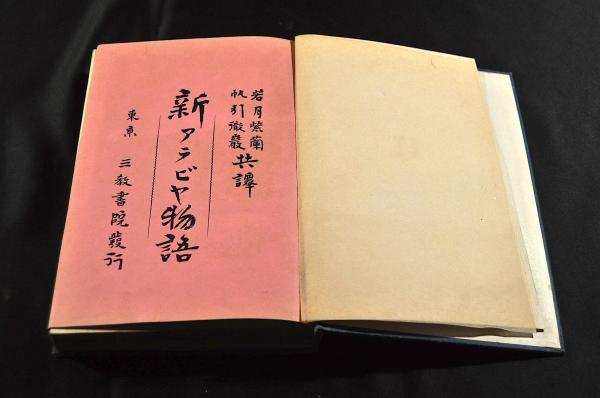 若月紫蘭
帆引徹嚴共譯
新アラビヤ物語
東京 三教書院發行